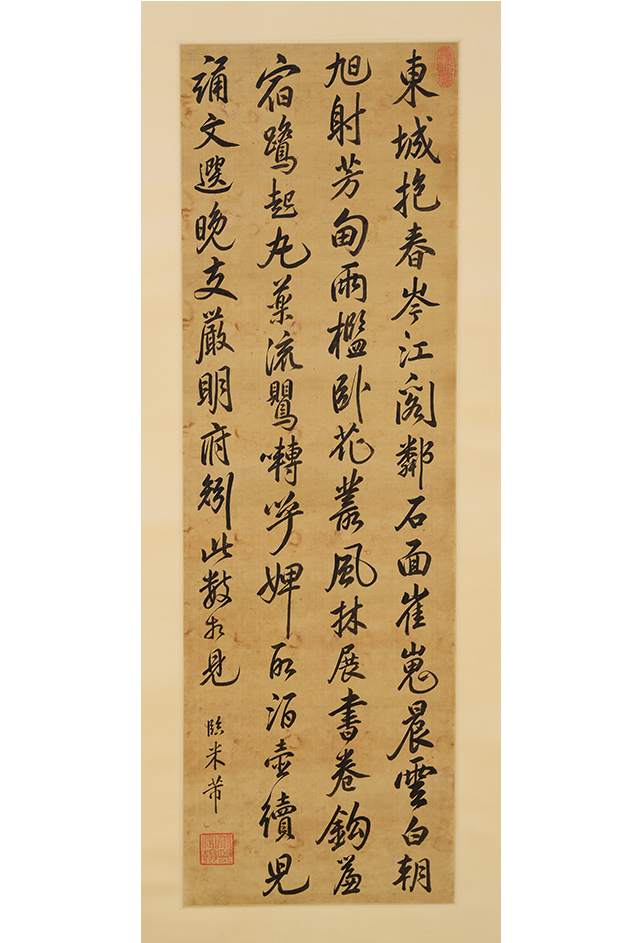 東城抱春岑江閣鄰石面崔嵬晨雲白朝
旭射芳甸雨檻臥花叢風牀展書卷鈎簾
宿鷺起丸藥流鸎囀呼婢取酒壺續兒
誦文選晚交嚴明府矧此數相見
臨米芾